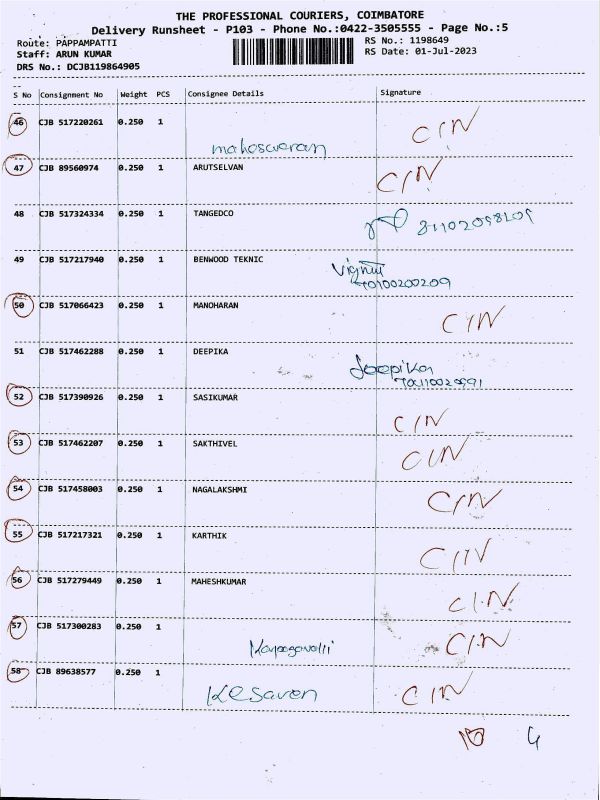 THE PROFESSIONAL COURIERS, COIMBATORE
Delivery Runsheet - P103 - Phone No.:0422-3505555 - Page No.:5
Route: PAPPAMPATTI RS No.: 1198649
Staff: ARUN KUMAR RS Date: 01-Jul-2023
DRS No.: DCJB119864905
S No Consignment No Weight PCS Consignee Details Signature
46 CJB 517220261 0.250 1 CIN
47 CJB 89560974 0.250 1 ARUTSELVAN CIN
48 CJB 517324334 0.250 1 TANGEDCO
49 CJB 517217940 0.250 1 BENWOOD TEKNIC
50 CJB 517066423 0.250 1 MANOHARAN CIN
51 CJB 517462288 0.250 1 DEEPIKA
Deepika
52 CJB 517390926 0.250 1 SASIKUMAR CIN
53 CJB 517462207 0.250 1 SAKTHIVEL CIN
54 CJB 517458003 0.250 1 NAGALAKSHMI CIN
55 CJB 517217321 0.250 1 KARTHIK CIN
56 CJB 517279449 0.250 1 MAHESHKUMAR CIN
57 CJB 517300283 0.250 1 CIN
58 CJB 89638577 0.250 1 Kesaven CIN
4